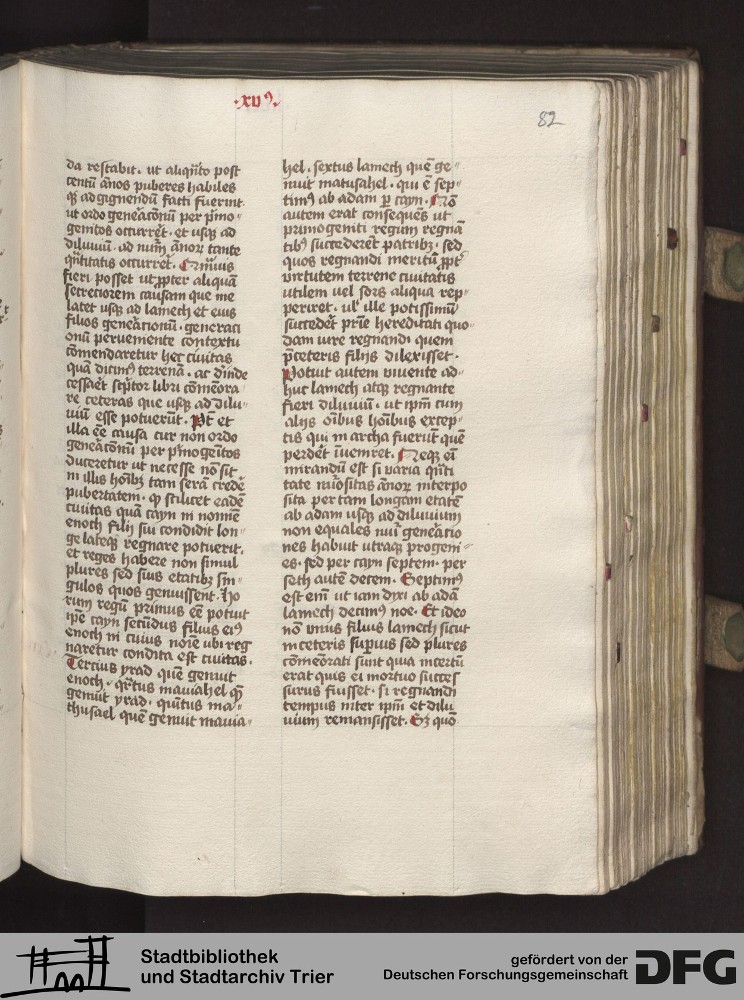 ·xvꝰ·
82
da restabit. ut aliqñto post
centū ãnos puberes habiles
qꝫ ad gignendũ facti fuerint.
ut ordo geneãconũ per pͥmo
genitos occurret. et usqꝫ ad
diluuiũ. ad num̃ ãnoꝝ tante
qñtitatis occurret. Quãuis
fieri posset ut ꝓpter aliquã
secreciorem causam que me
latet usqꝫ ad lamech et eius
filios geneãrionũ. generaci
onũ perueniente contextu
cõmendaretur hec ciuitas
quã dicimꝰ terrenã. ac dĩnde
cessaret scͥptor libri cõmēora
re ceteras que usqꝫ ad dilu-
uiũ esse potuerũt. Pt̃ et
illa ēē causa cur non ordo
geneãconũ per pͥmogeitos
duceretur ut necesse nõ sit
in illis hoĩbꝫ tam serã credẽ
pubertatem. ꝙ scilicet eadẽ
ciuitas quã cayn in noniẽ
enoch filij sui condidit lon-
ge lateqꝫ regnare potuerit.
et reges habere non simul
plures sed suis etatibꝫ sin-
gulos quos genuissent. Ho
rum regũ primus ēē potuit
ipẽ cayn secũdus filius eiꝰ
enoch in cuius noĩe ubi reg
naretur condita est ciuitas.
Tercius yrad quẽ genuit
enoch. qͣrtus mauiahel qẽ
genuit yrad. quĩtus ma-
thusael quẽ genuit mauia-
hel. sextus lamech quẽ ge-
nuit matusahel. qui ē sep-
timꝰ ab adam ꝑ cayn. Nõ
autem erat consequẽs ut
primogeniti regum regnã
tibꝰ succederẽt patribꝫ. sed
quos regnandi meritũ ꝓpt̃
uirtutem terrene ciuitatis
utilem uel sors aliqua rep-
periret. ul̓ ille potissimũ
succedẽt prĩe hereditati quo-
dam iure regnandi quem
p̃ceteris filijs dilexisset.
Potuit autem uiuente ad-
huc lamech atqꝫ regnante
fieri diluuiũ. ut ipm̃ cum
alijs oĩbus hoĩbus excep-
tis qui in archa fuerũt quẽ
perdẽt ĩuenirẽt. Neqꝫ eĩ
mirandũ est si uaria qñti
tate nũositas ãnoꝝ interpo
sita per tam longam etatẽ
ab adam usqꝫ ad diluuium
non equales nũi geneãcio
nes habuit utraqꝫ progeni-
es. sed per cayn septem. per
seth autẽ decem. Septimꝰ
est eĩm ut iam dixi ab adã
lamech decimꝰ noe. Et ideo
nõ unus filius lamech sicut
in ceteris supius sed plures
cõmẽorati sunt quia incertũ
erat quis ei mortuo succes
surus fuisset. si regnandi
tempus inter ipm̃ et dilu
uium remansisset. Sꝫ quõ
Stadtbibliothek
und Stadtarchiv Trier
gefördert von der
Deutschen Forschungsgemeinschaft
DFG